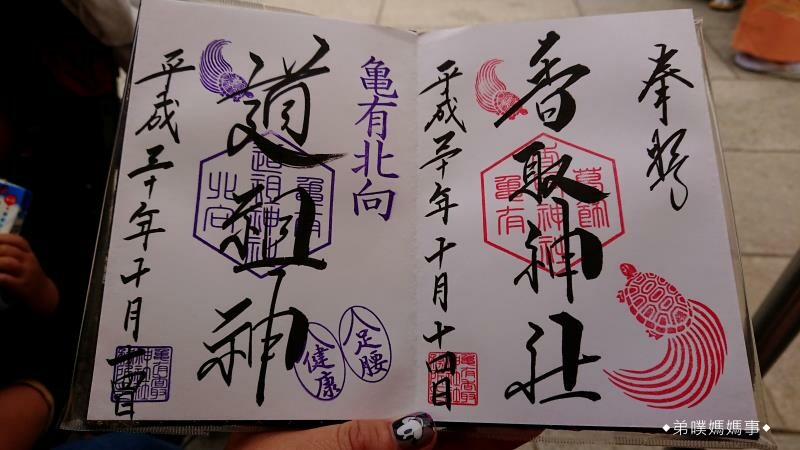 奉拝
香取神社
葛飾
香取神社
亀有
平成三十年十月十四日
亀有北向
道祖神
亀有
道祖神神社
北向
足腰
健康
平成三十年十月十四日
◆弟噗媽媽事◆